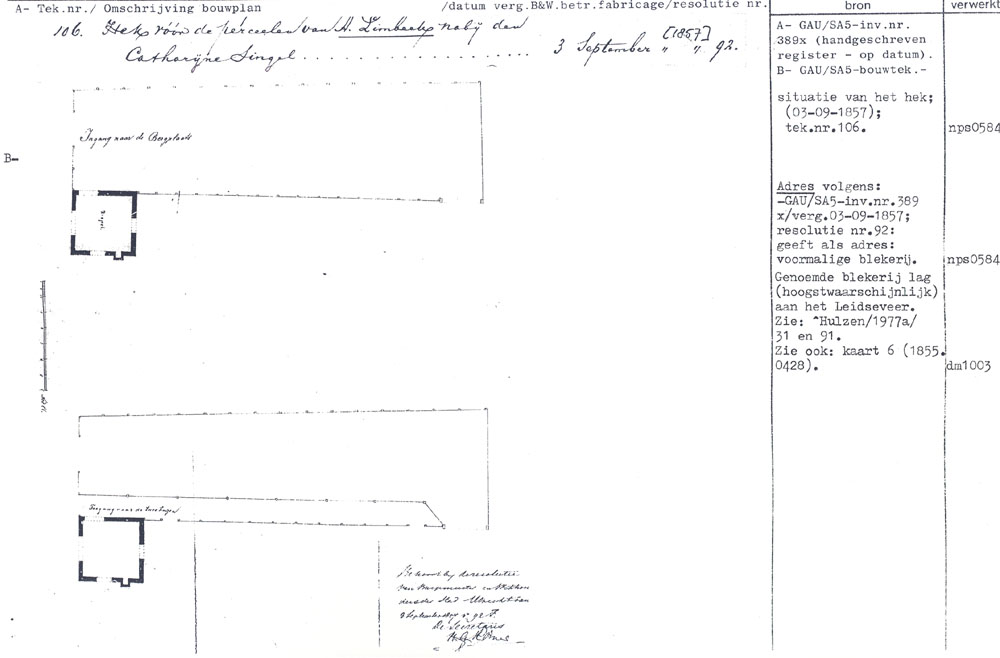 A- Tek.nr./ Omschrijving bouwplan /datum verg.B&W.betr.fabricage/resolutie nr. bron verwerkt
106. Hek vóór de perceelen van A. Limbeek nabij den
Catharijne Singel . . . . . . . . . . . . 3 September [1857] " " 92.
A- GAU/SA5-inv.nr.
389x (handgeschreven
register - op datum).
B- GAU/SA5-bouwtek.-
situatie van het hek;
(03-09-1857);
tek.nr.106. nps0584
Ingang naar de
B-
Adres volgens:
-GAU/SA5-inv.nr.389
x/verg.03-09-1857;
resolutie nr.92:
geeft als adres:
voormalige blekerij. nps0584
Genoemde blekerij lag
(hoogstwaarschijnlijk)
aan het Leidseveer.
Zie: ^Hulzen/1977a/
31 en 91.
Zie ook: kaart 6 (1855.
0428). dm1003
naar de
Behoort bij de resolutie
van Burgemeester en Wethou
ders der Stad Utrecht van
3 September 1857 n. 92 F.
De Secretaris